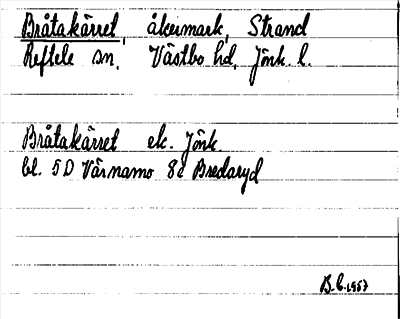 Bråtakärret, åkermark, Strand
Reftele sn, Västbo hd, Jönk. l.
Bråtakärret ek. Jönk
bl. 5D Värnamo 8c Bredaryd
B.C. 1957